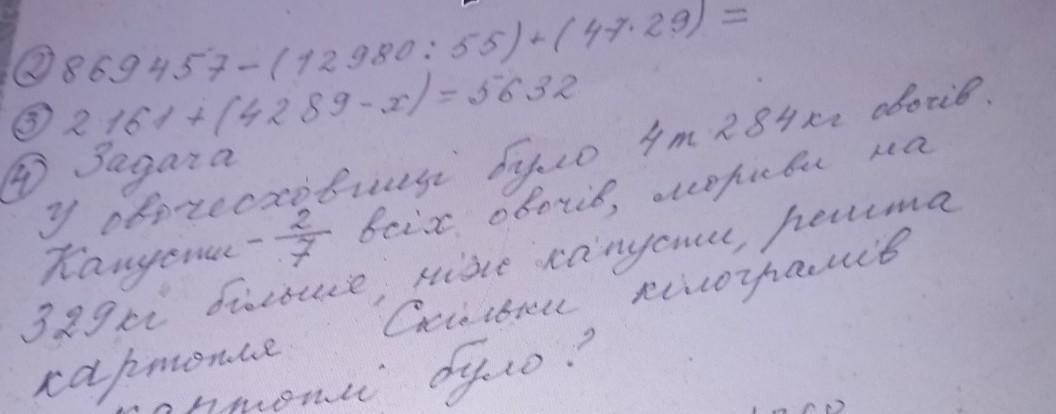 ② 869457-(12980:55)+(47·29)=
③ 2161+(4289-х)=5632
④ Задача
У овочесховищі було 4т 284кг овочів.
Капусти - 2/7 всіх овочів, моркви на
329кг більше, ніж капусти, решта
картопля Скільки кілограмів
картоплі було?